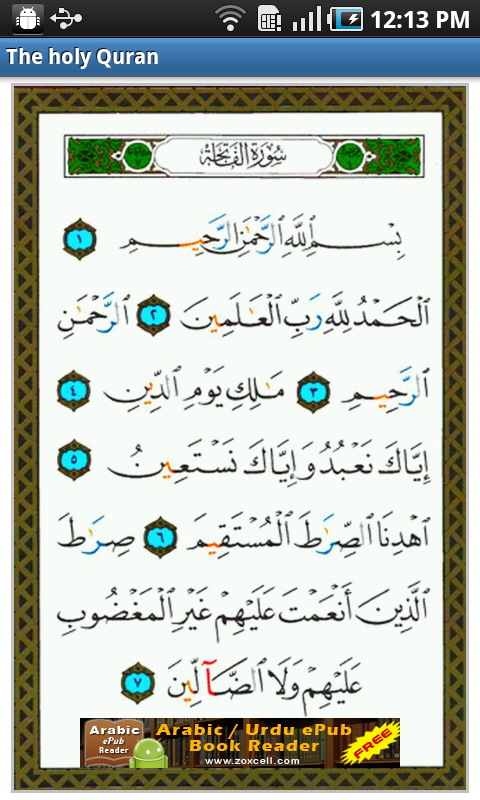 12:13 PM
The holy Quran
سُورَةُ الفَاتِحَة
بِسْمِ ٱللَّهِ ٱلرَّحْمَٰنِ ٱلرَّحِيمِ ١
ٱلْحَمْدُ لِلَّهِ رَبِّ ٱلْعَـٰلَمِينَ ٢ ٱلرَّحْمَٰنِ
ٱلرَّحِيمِ ٣ مَـٰلِكِ يَوْمِ ٱلدِّينِ ٤
إِيَّاكَ نَعْبُدُ وَإِيَّاكَ نَسْتَعِينُ ٥
ٱهْدِنَا ٱلصِّرَٰطَ ٱلْمُسْتَقِيمَ ٦ صِرَٰطَ
ٱلَّذِينَ أَنْعَمْتَ عَلَيْهِمْ غَيْرِ ٱلْمَغْضُوبِ
عَلَيْهِمْ وَلَا ٱلضَّآلِّينَ ٧
Arabic ePub Reader
Arabic / Urdu ePub
Book Reader
www.zoxcell.com
FREE